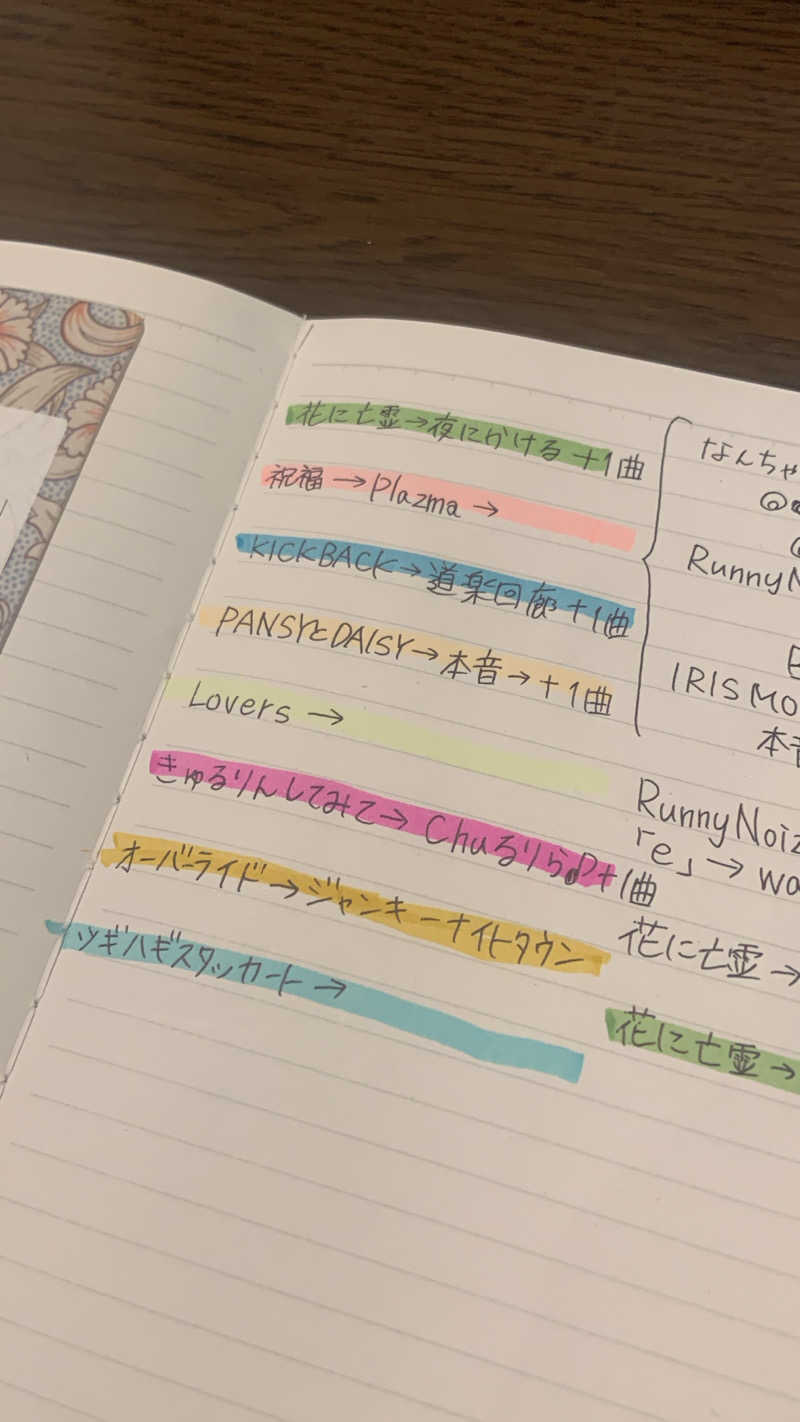 花に亡霊→夜にかける+1曲
祝福→Plazma→
KICKBACK→道楽回廊+1曲
PANSYとDAISY→本音→+1曲
Lovers→
きゅるりんしてみて→Chuるりら。+1曲
オーバーライド→ジャンキーナイトタウン
ツギハギスタッカート→
なんちゃ
@
RunnyN
IRISMO
本音
RunnyNoiz
「re」→wa
花に亡霊→
花に亡霊→